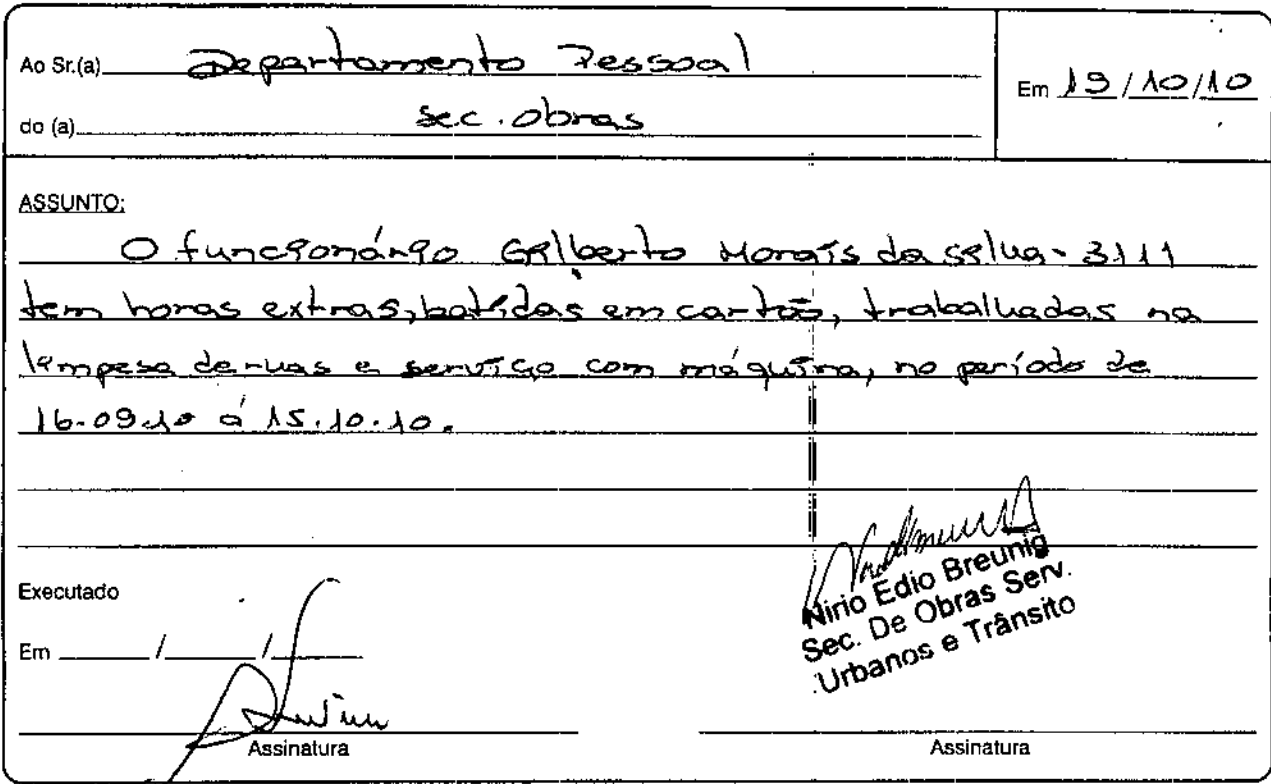 Ao Sr.(a) Departamento Pessoal
do (a) Sec. Obras
Em 19/10/10
ASSUNTO:
O funcionário Gilberto Morais da Silva - 3111
tem horas extras, batidas em cartão, trabalhadas na
limpesa de ruas e serviço com máquina, no período de
16.09.10 á 15.10.10.
Executado
Em / /
Nirio Edio Breunig
Sec. De Obras Serv.
Urbanos e Trânsito
Assinatura
Assinatura